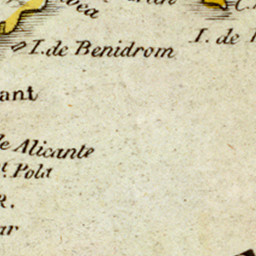 I. de Benidrom
I. de
ant
de Alicante
t. Pola
R.
ar